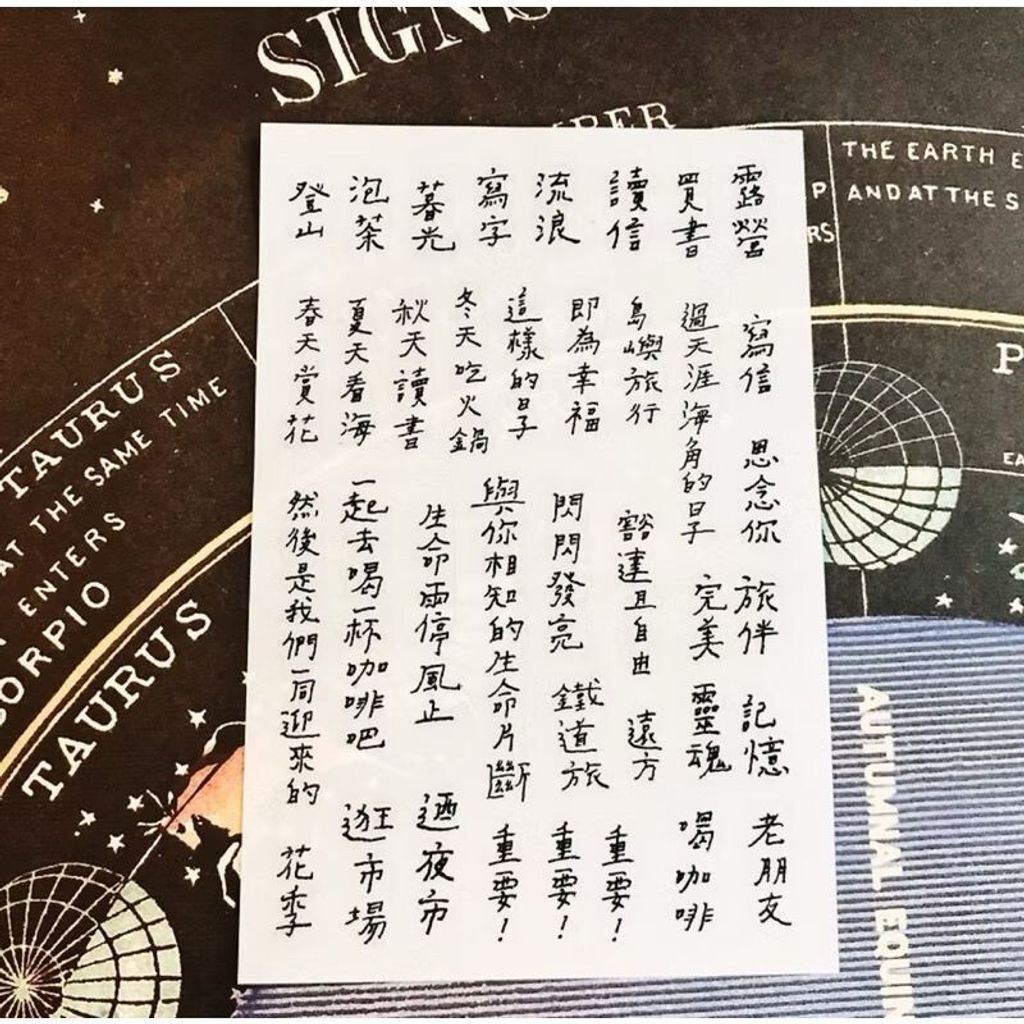 露營 寫信 思念你 旅伴 記憶 老朋友
買書 過天涯海角的日子 完美 靈魂 喝咖啡
讀信 島嶼旅行 豁達且自由 遠方 重要!
流浪 即為幸福 閃閃發亮 鐵道旅 重要!
寫字 這樣的日子 與你相知的生命片斷 重要!
冬天吃火鍋
暮光 秋天讀書 生命雨停風止 迺夜市
泡茶 夏天看海 一起去喝一杯咖啡吧 逛市場
登山 春天賞花 然後是我們一同迎來的 花季
SIGNS
THE EARTH
AND AT THE S
TAURUS
AT THE SAME TIME
ENTERS
TAURUS
AUTUMNAL EQUIN